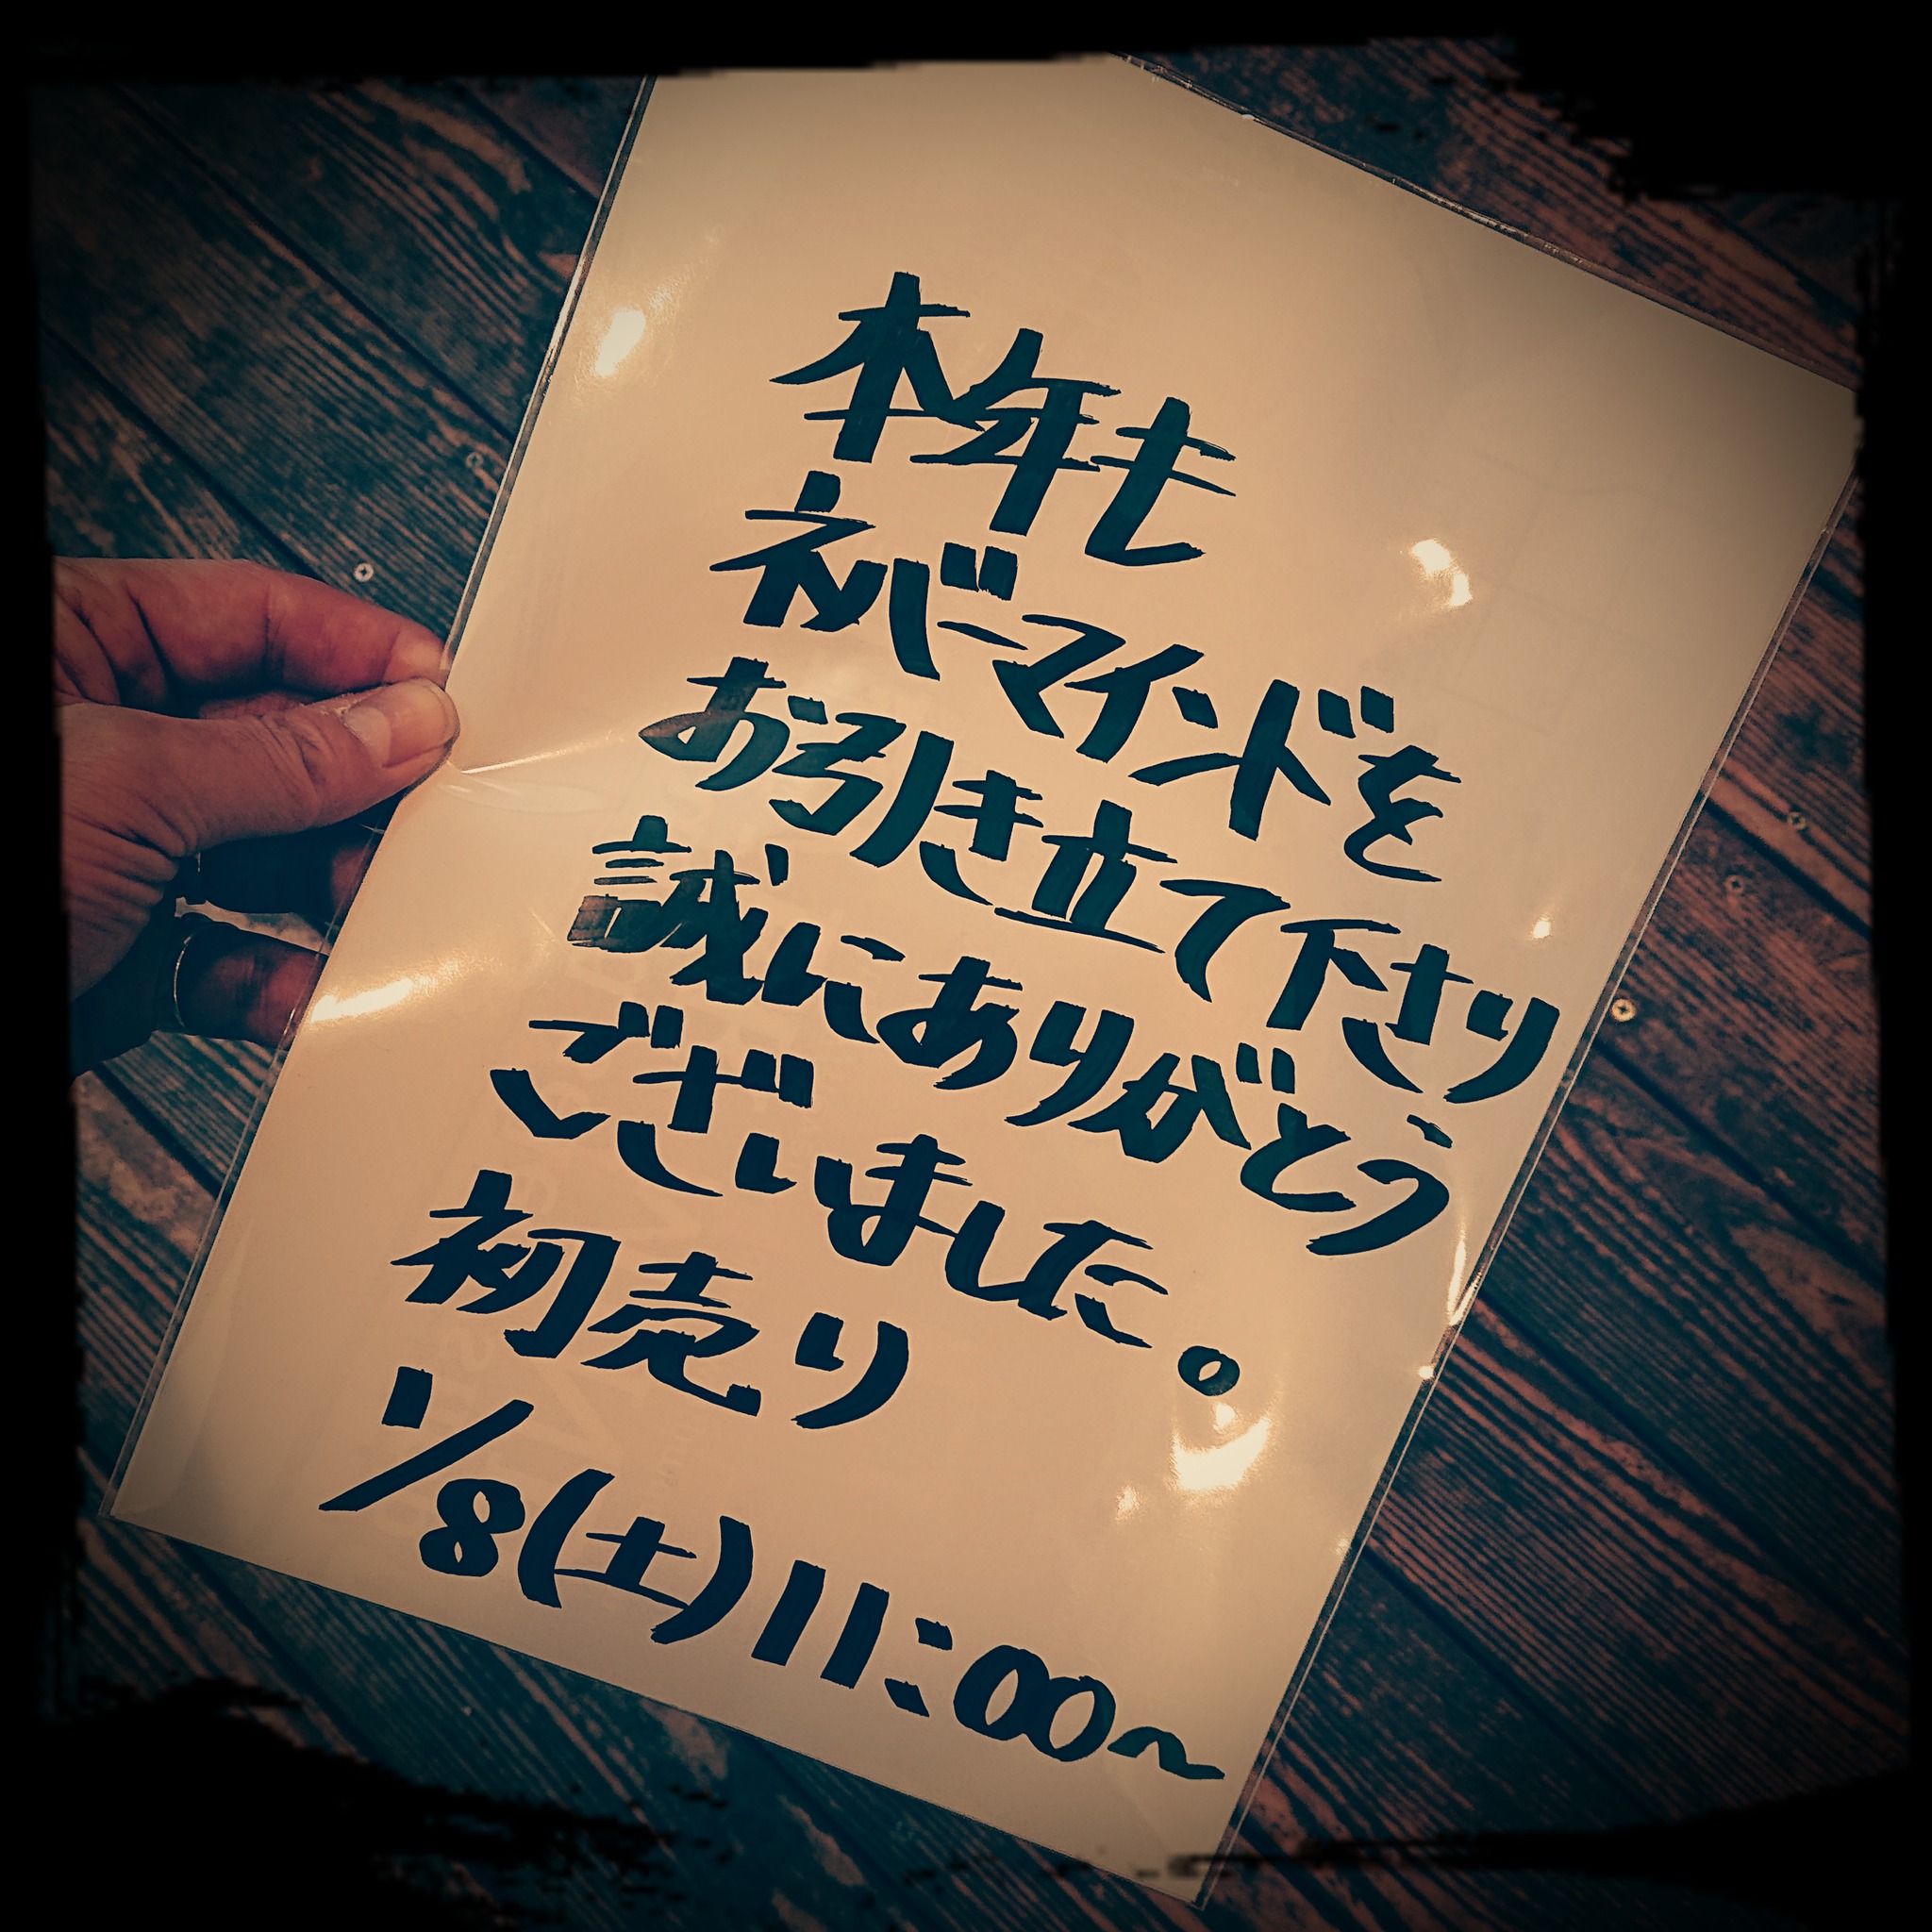 本年も
ネバーマインドを
お引き立て下さり
誠にありがとう
ございました。
初売り
1/8(土)11:00~